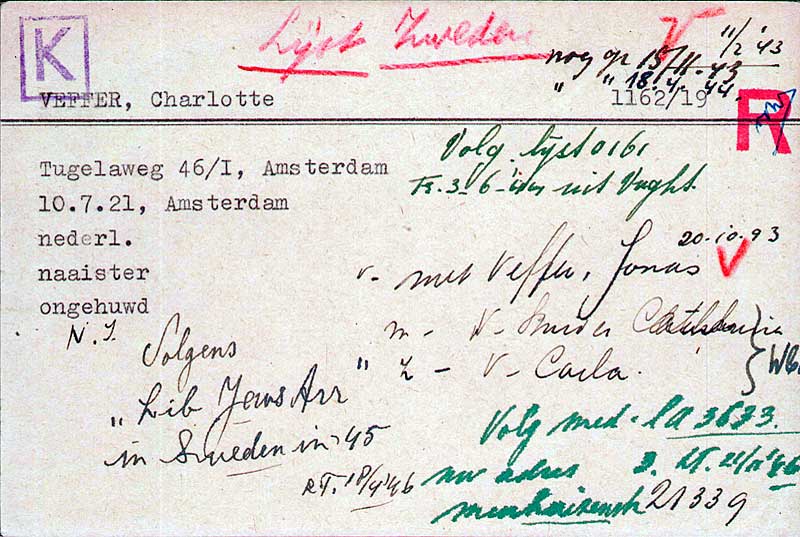 K
Lijst Zweden
V
11/2 '43
nog op 15/11-43
" " 18.4. 44.
VEFFER, Charlotte
1162/19
R
Volg. lijst 0161
Tr. 3-6- uit Vught.
Tugelaweg 46/I, Amsterdam
10.7.21, Amsterdam
nederl.
naaister
ongehuwd
N.I.
20.10.93
v- met Veffer, Jonas V
m- V-
" Z - V- Carla.
Volgens
" Lib Jews Arr
in Sweden in 45
RT. 18/4 '46
Volg med. LA 3633.
nw adres
21339